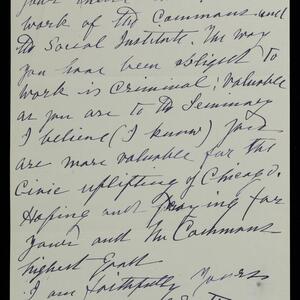 work of the Commons and
the Social Institute. The way
you have been obliged to
work is Criminal; valuable
as you are to the Seminary
I believe (I know) you
are more valuable for the
Civic uplifting of Chicago.
Hoping and Praying for
yours and the Commons
highest Good
I am faithfully Yours